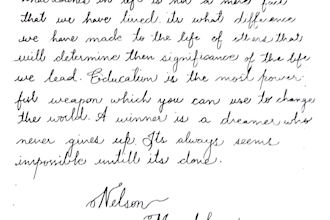 in life is not a mere fact
that we have lived. its what difference
we have made to the life of others that
will determine then significance of the life
we lead. Education is the most power-
ful weapon which you can use to change
the world. A winner is a dreamer who
never gives up. Its always seems
impossible untill its done.
Nelson